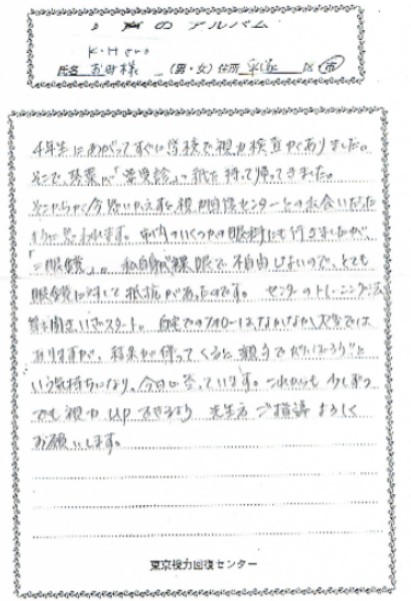 声のアルバム
K.Hさん
氏名 お母様 (男・女) 住所 区 市
4年生にあがってすぐに学校で視力検査がありました。
そこで、「要受診」の紙を持って帰ってきました。
そこからが今思いかえすと視力回復センターとの出会いだった
ように思われます。市内のいくつかの眼科にも行きましたが、
「眼鏡」。私自身が裸眼で不自由しないので、とても
眼鏡に対して抵抗があったのです。センターのトレーニング法
を聞き、いざスタート。自宅でのフォローはなかなか大変では
ありますが、結果が伴ってくると親子でがんばろう!と
いう気持ちになり、今日に至っています。これからも少しずつ
でも視力upできるよう 先生方 ご指導よろしく
お願いします。
東京視力回復センター